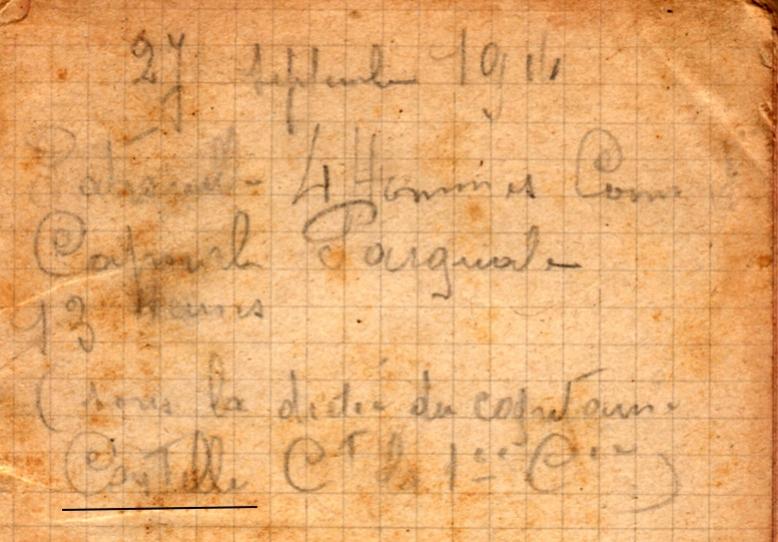 27 Septembre 1914
Patrouille 4 Hommes
Caporal Pasquale
13 heures
(sous la dictée du capitaine
Ct de 1ère Cie)